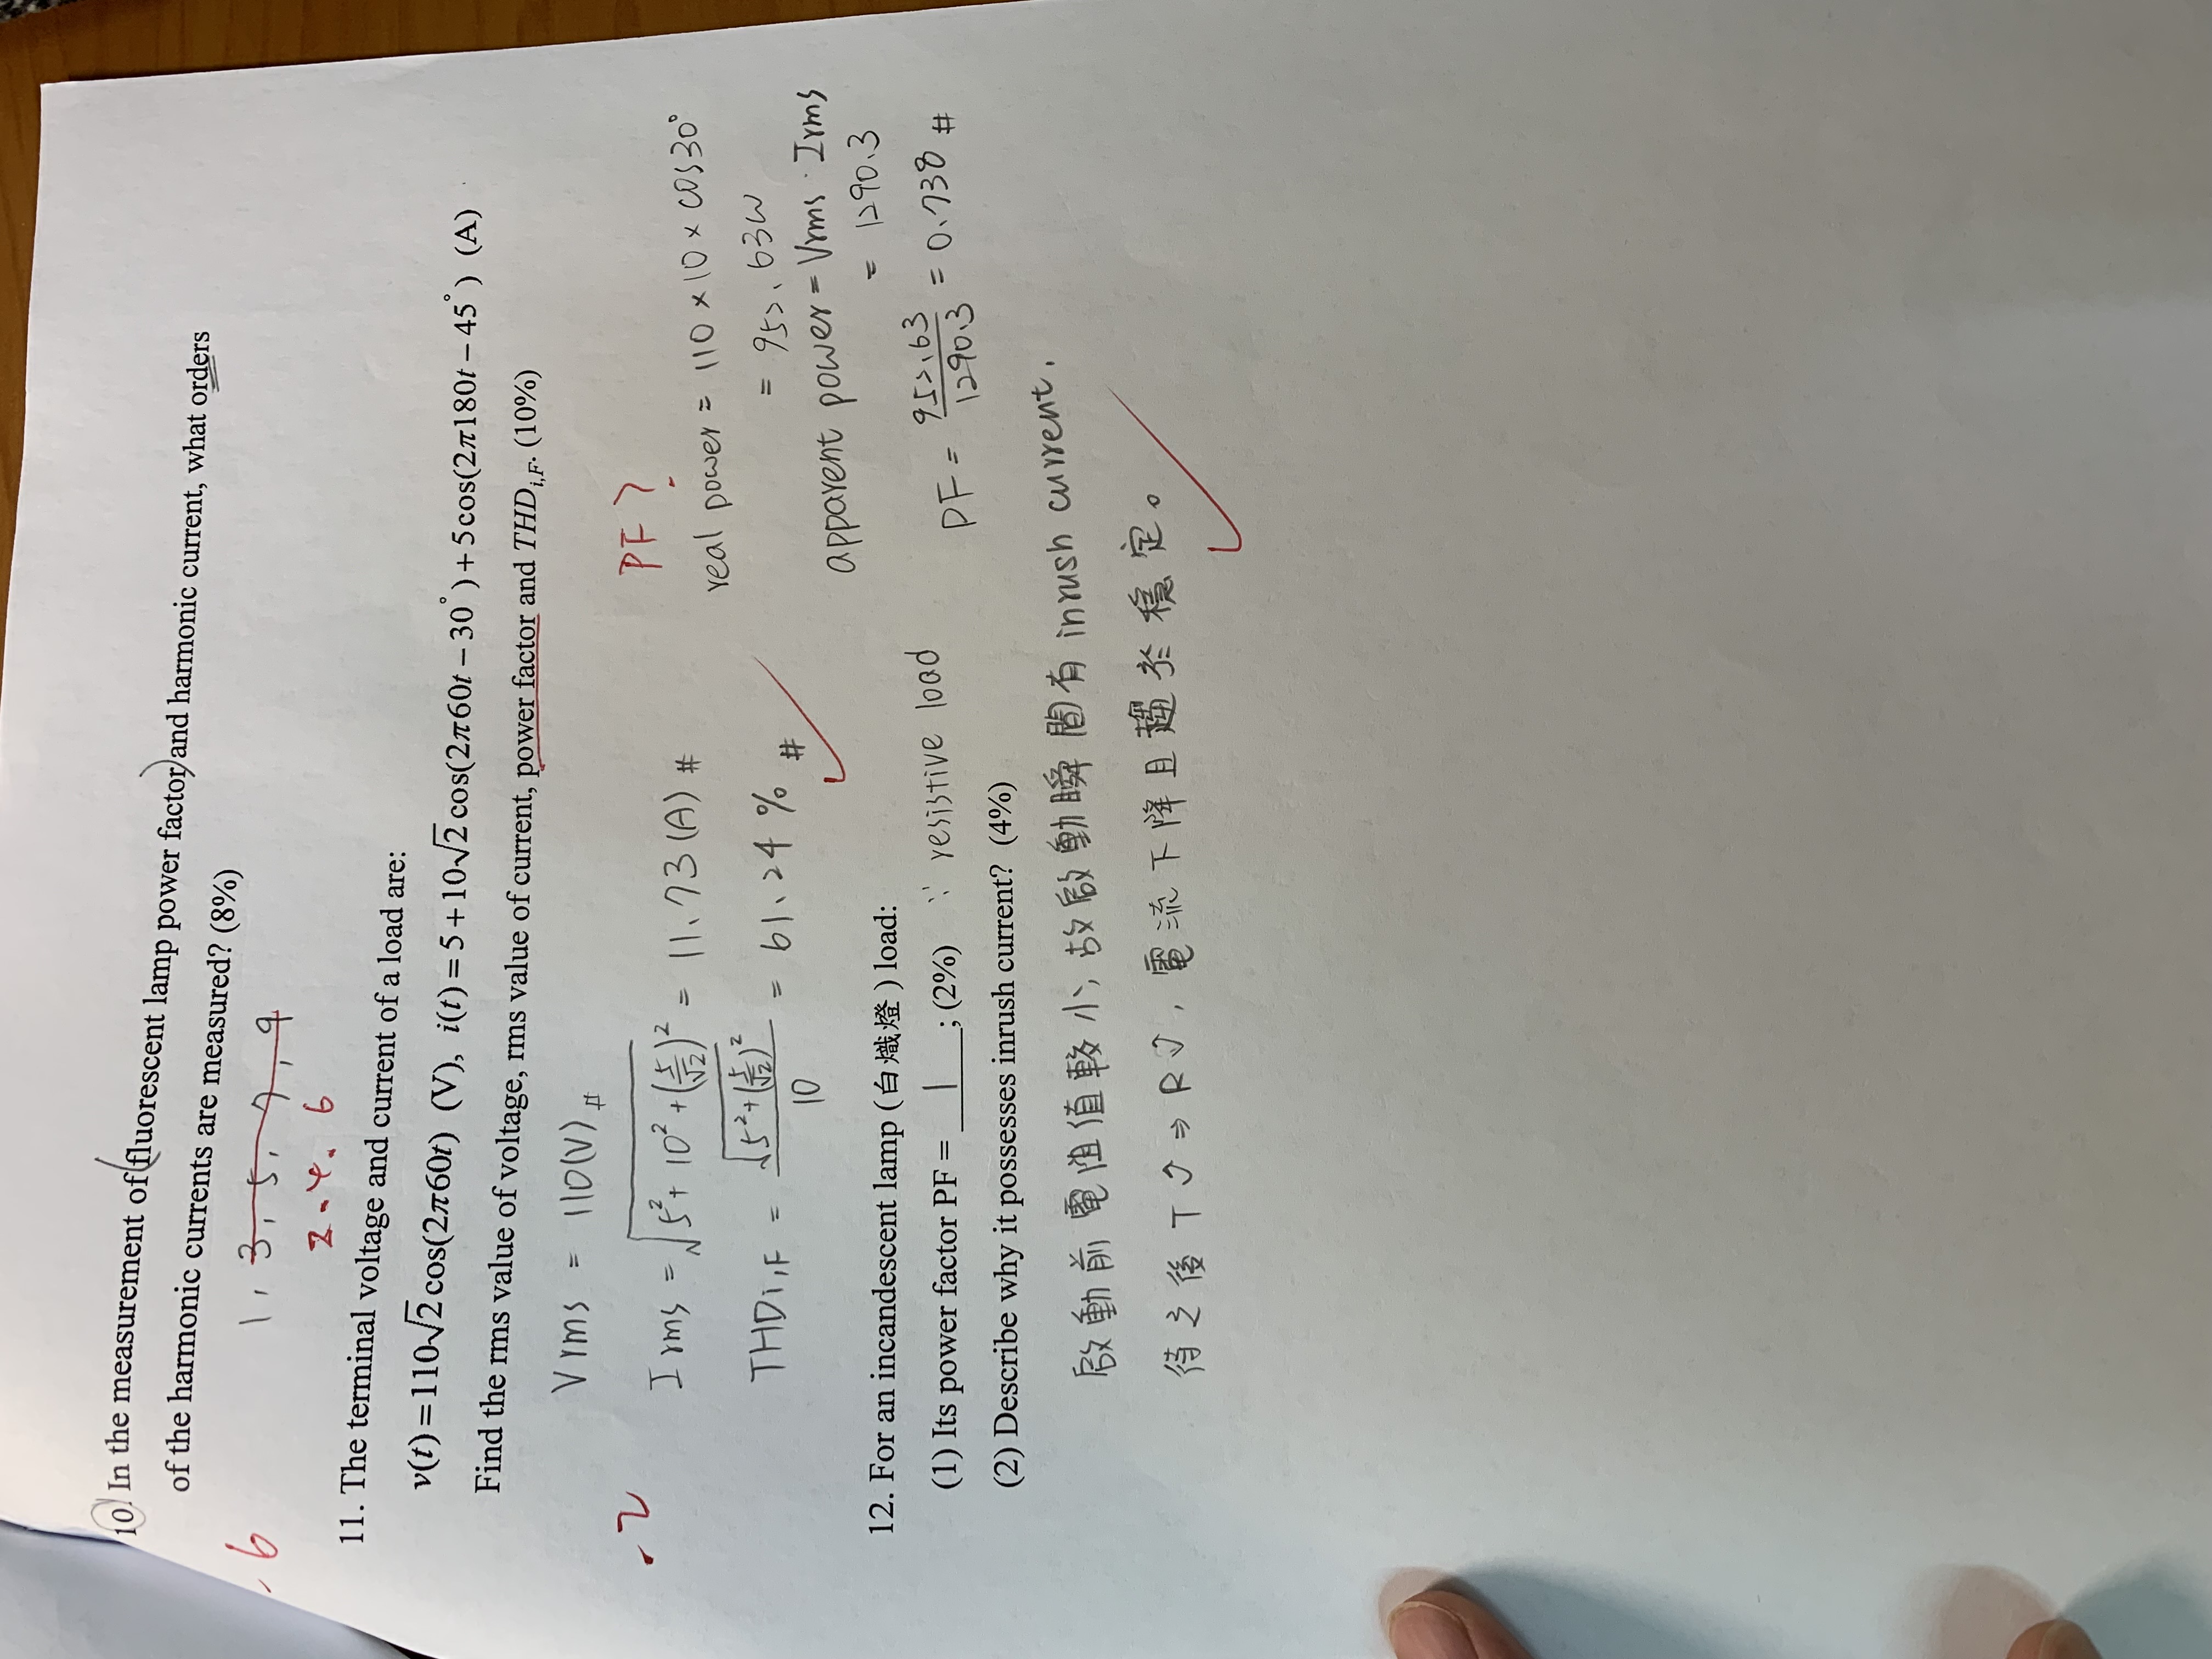 10. In the measurement of (fluorescent lamp power factor) and harmonic current, what orders
of the harmonic currents are measured? (8%)
-6
1, 3, 5, 7, 9
2. 4. 6
11. The terminal voltage and current of a load are:
v(t)=110√2cos(2π60t) (V), i(t)=5+10√2cos(2π60t−30°)+5cos(2π180t−45°) (A)
Find the rms value of voltage, rms value of current, power factor and THD_{i,F}. (10%)
Vrms = 110(V) #
-2
Irms = √(5²+10²+(5/√2)²) = 11.73(A) #
THDi,F = √(5²+(5/√2)²)/10 = 61.24% #
PF?
real power = 110×10×cos30°
= 952.63W
apparent power = Vrms·Irms
= 1290.3
PF = 952.63/1290.3 = 0.738 #
12. For an incandescent lamp (白熾燈) load:
(1) Its power factor PF = 1 ; (2%) ∵ resistive load
(2) Describe why it possesses inrush current? (4%)
啟動前電阻值較小,故啟動瞬間有inrush current.
待之後T↑⇒R↑,電流下降且趨於穩定。